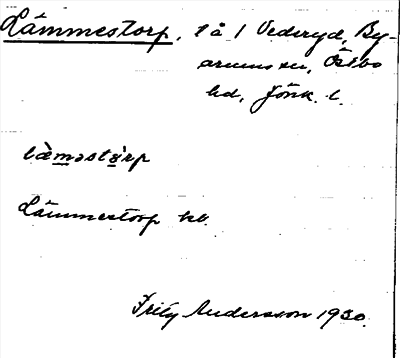 Lämmestorp, t å 1 Vederyd, By-
arums sn, Östbo
hd, Jönk. l.
læ̀məstɔ̀rp
Lämmestorp kb.
Fritz Andersson 1930.